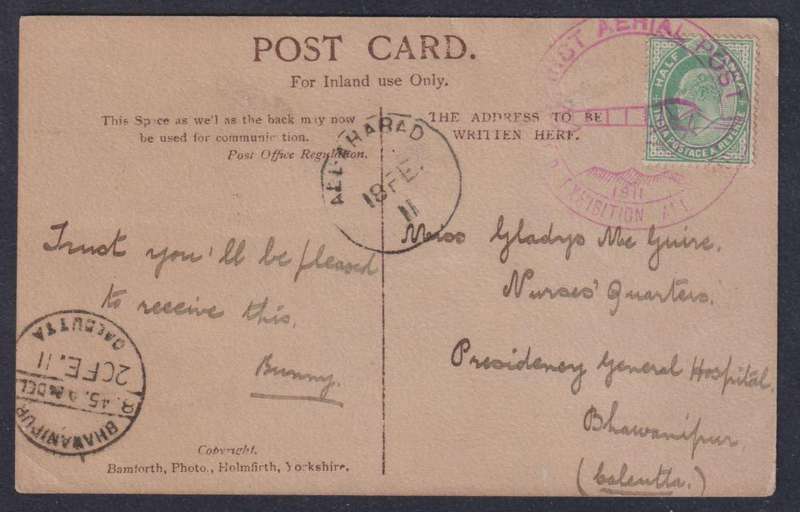 POST CARD.
For Inland use Only.
This Space as well as the back may now
be used for communication.
Post Office Regulation.
THE ADDRESS TO BE
WRITTEN HERE.
FIRST AERIAL POST
1911
EXHIBITION ALL
HALF
INDIA POSTAGE & REVENUE
ALLAHABAD
18 FE.
11
Trust you'll be pleased
to receive this.
Bunny.
Miss Gladys Mc Guire.
Nurses' Quarters.
Presidency General Hospital,
Bhawanipur.
(Calcutta.)
BHAWANIPUR
8.45. A.M DEL.
20 FE. 11
CALCUTTA
Copyright.
Bamforth, Photo., Holmfirth, Yorkshire.